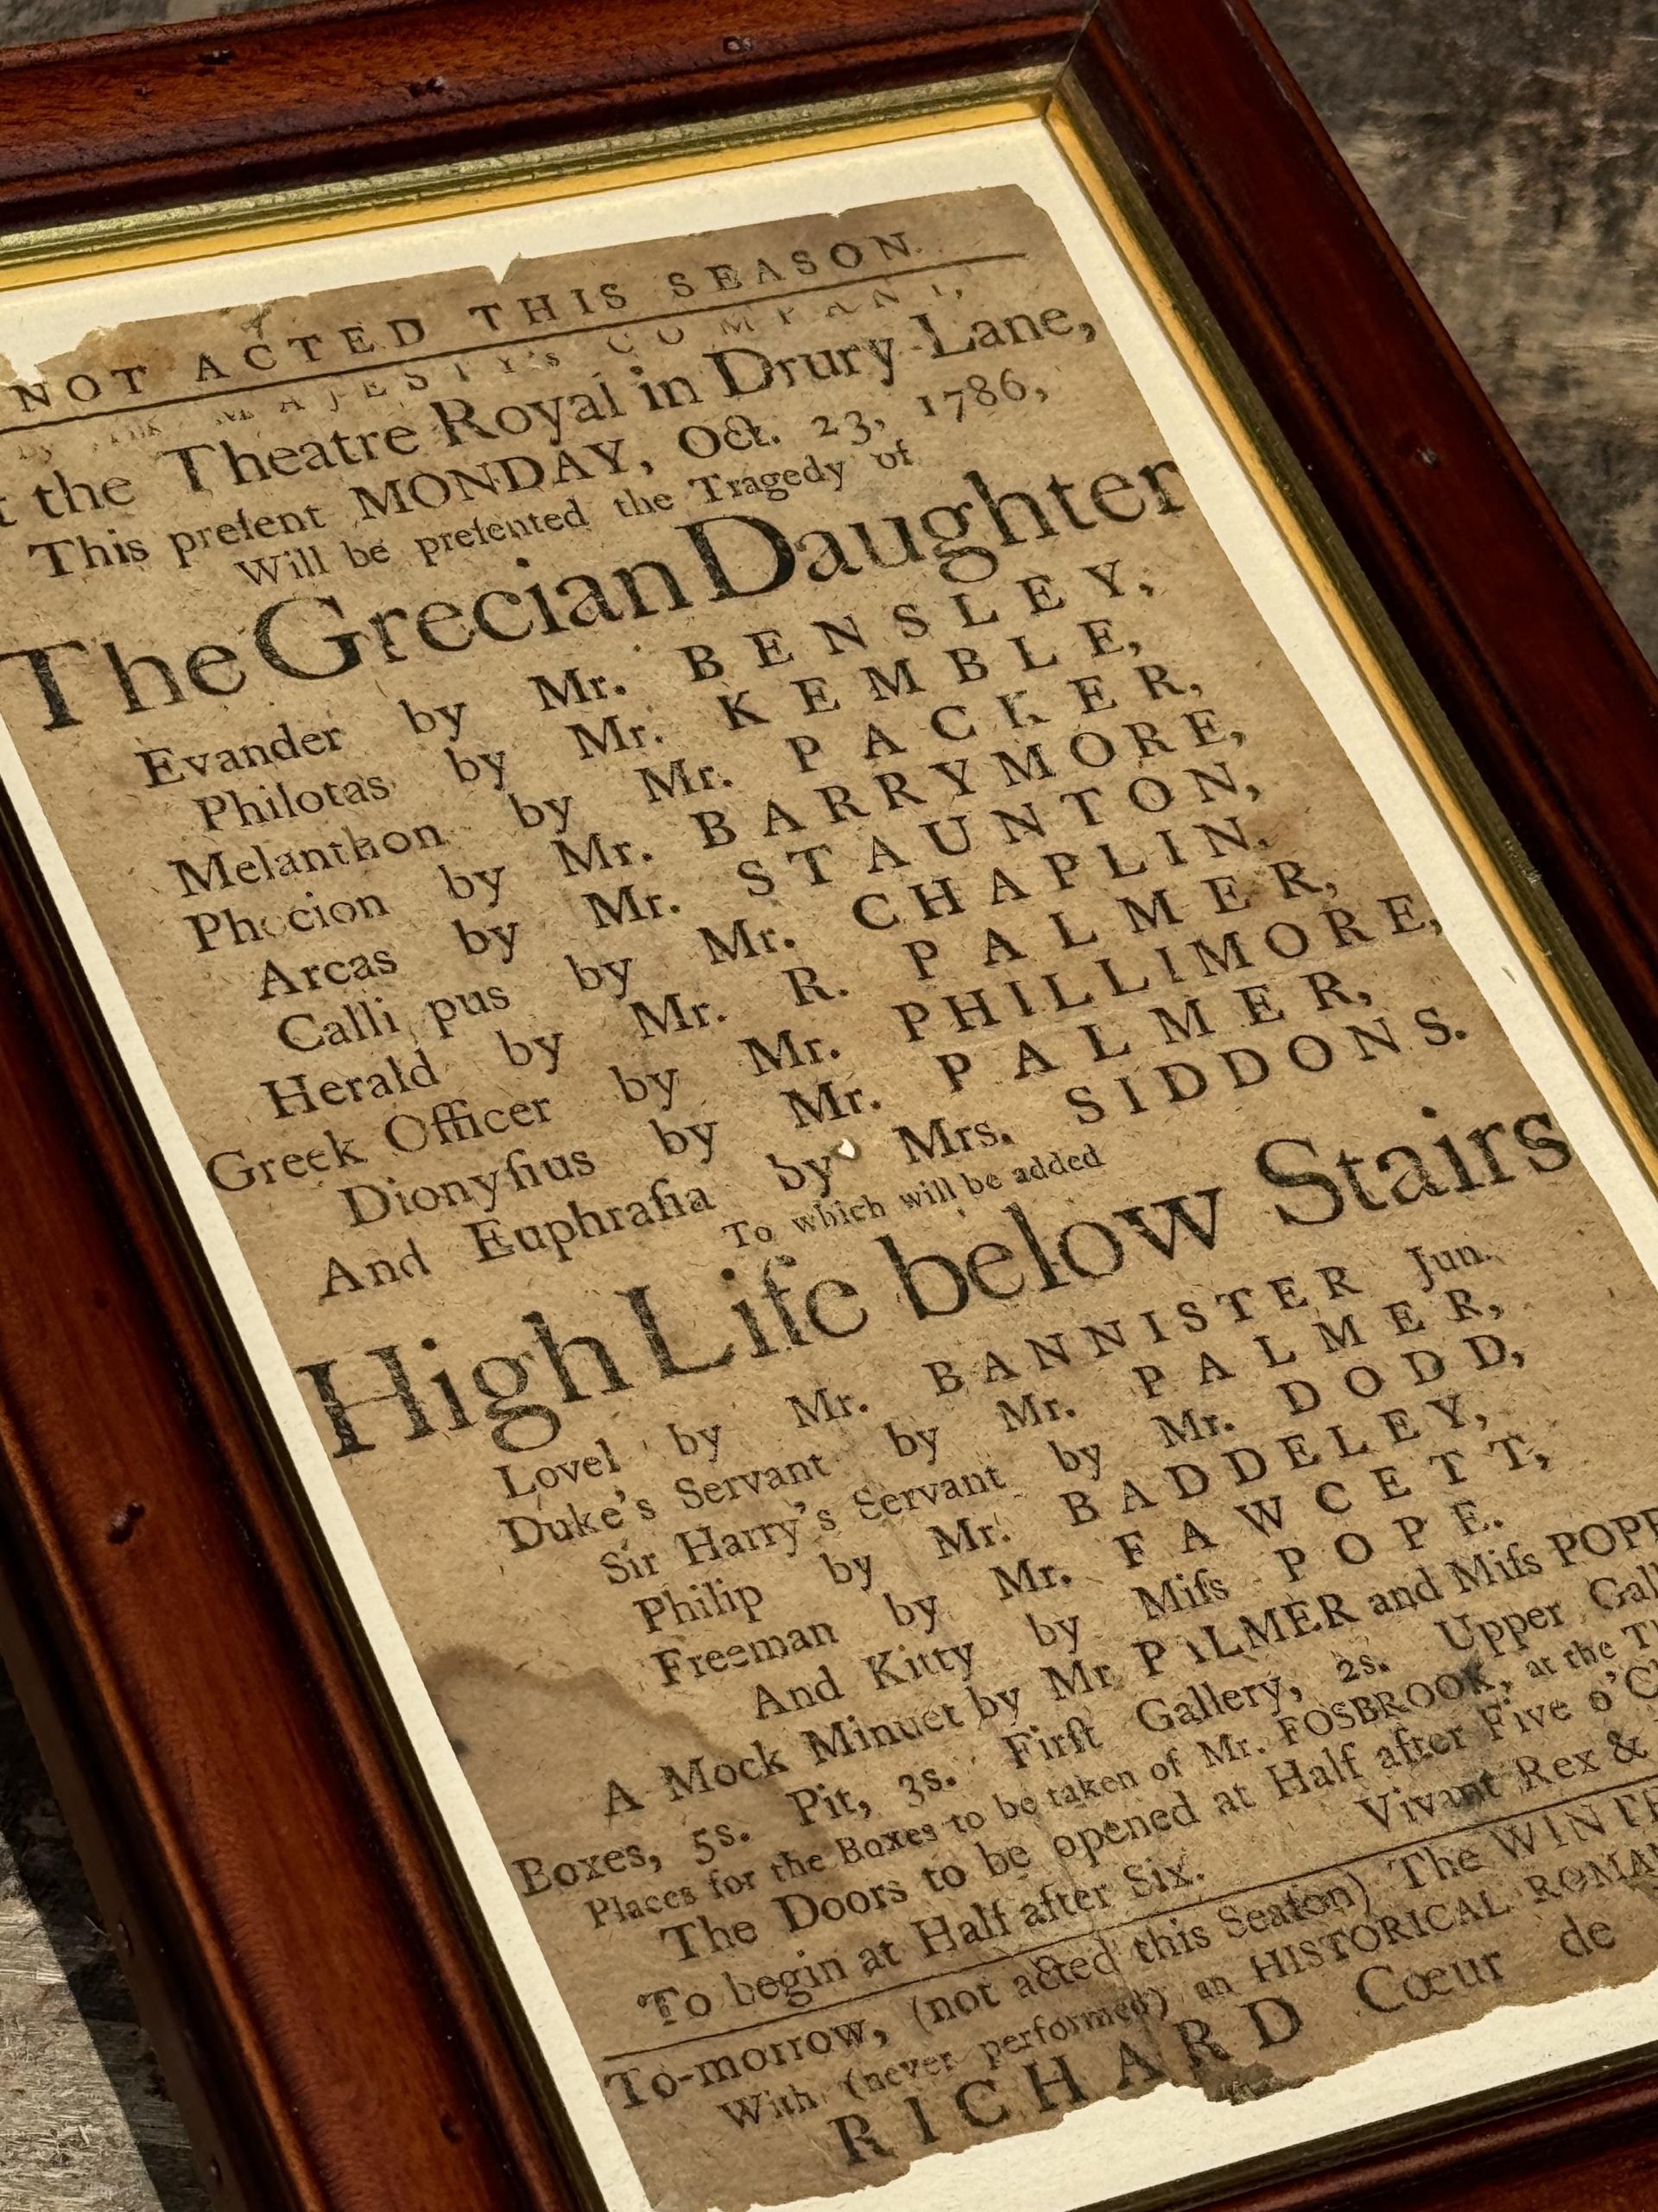 NOT ACTED THIS SEASON.
MAJESTY's COMPANY,
the Theatre Royal in Drury-Lane,
This preſent MONDAY, Oct. 23, 1786,
Will be preſented the Tragedy of
The Grecian Daughter
Evander by Mr. BENSLEY,
Philotas by Mr. KEMBLE,
Melanthon by Mr. PACKER,
Phocion by Mr. BARRYMORE,
Arcas by Mr. STAUNTON,
Calli pus by Mr. CHAPLIN,
Herald by Mr. R. PALMER,
Greek Officer by Mr. PHILLIMORE,
Dionyſius by Mr. PALMER,
And Euphraſia by Mrs. SIDDONS.
To which will be added
High Life below Stairs
Lovel by Mr. BANNISTER Jun.
Duke's Servant by Mr. PALMER,
Sir Harry's Servant by Mr. DODD,
Philip by Mr. BADDELEY,
Freeman by Mr. FAWCETT,
And Kitty by Miſs POPE.
A Mock Minuet by Mr PALMER and Miſs POPE
Boxes, 5s. Pit, 3s. Firſt Gallery, 2s. Upper Gal
Places for the Boxes to be taken of Mr. FOSBROOK, at the T
The Doors to be opened at Half after Five o'C
To begin at Half after Six. Vivant Rex &
To-morrow, (not acted this Seaſon) The WINTE
With (never performed) an HISTORICAL ROMA
RICHARD Cœur de